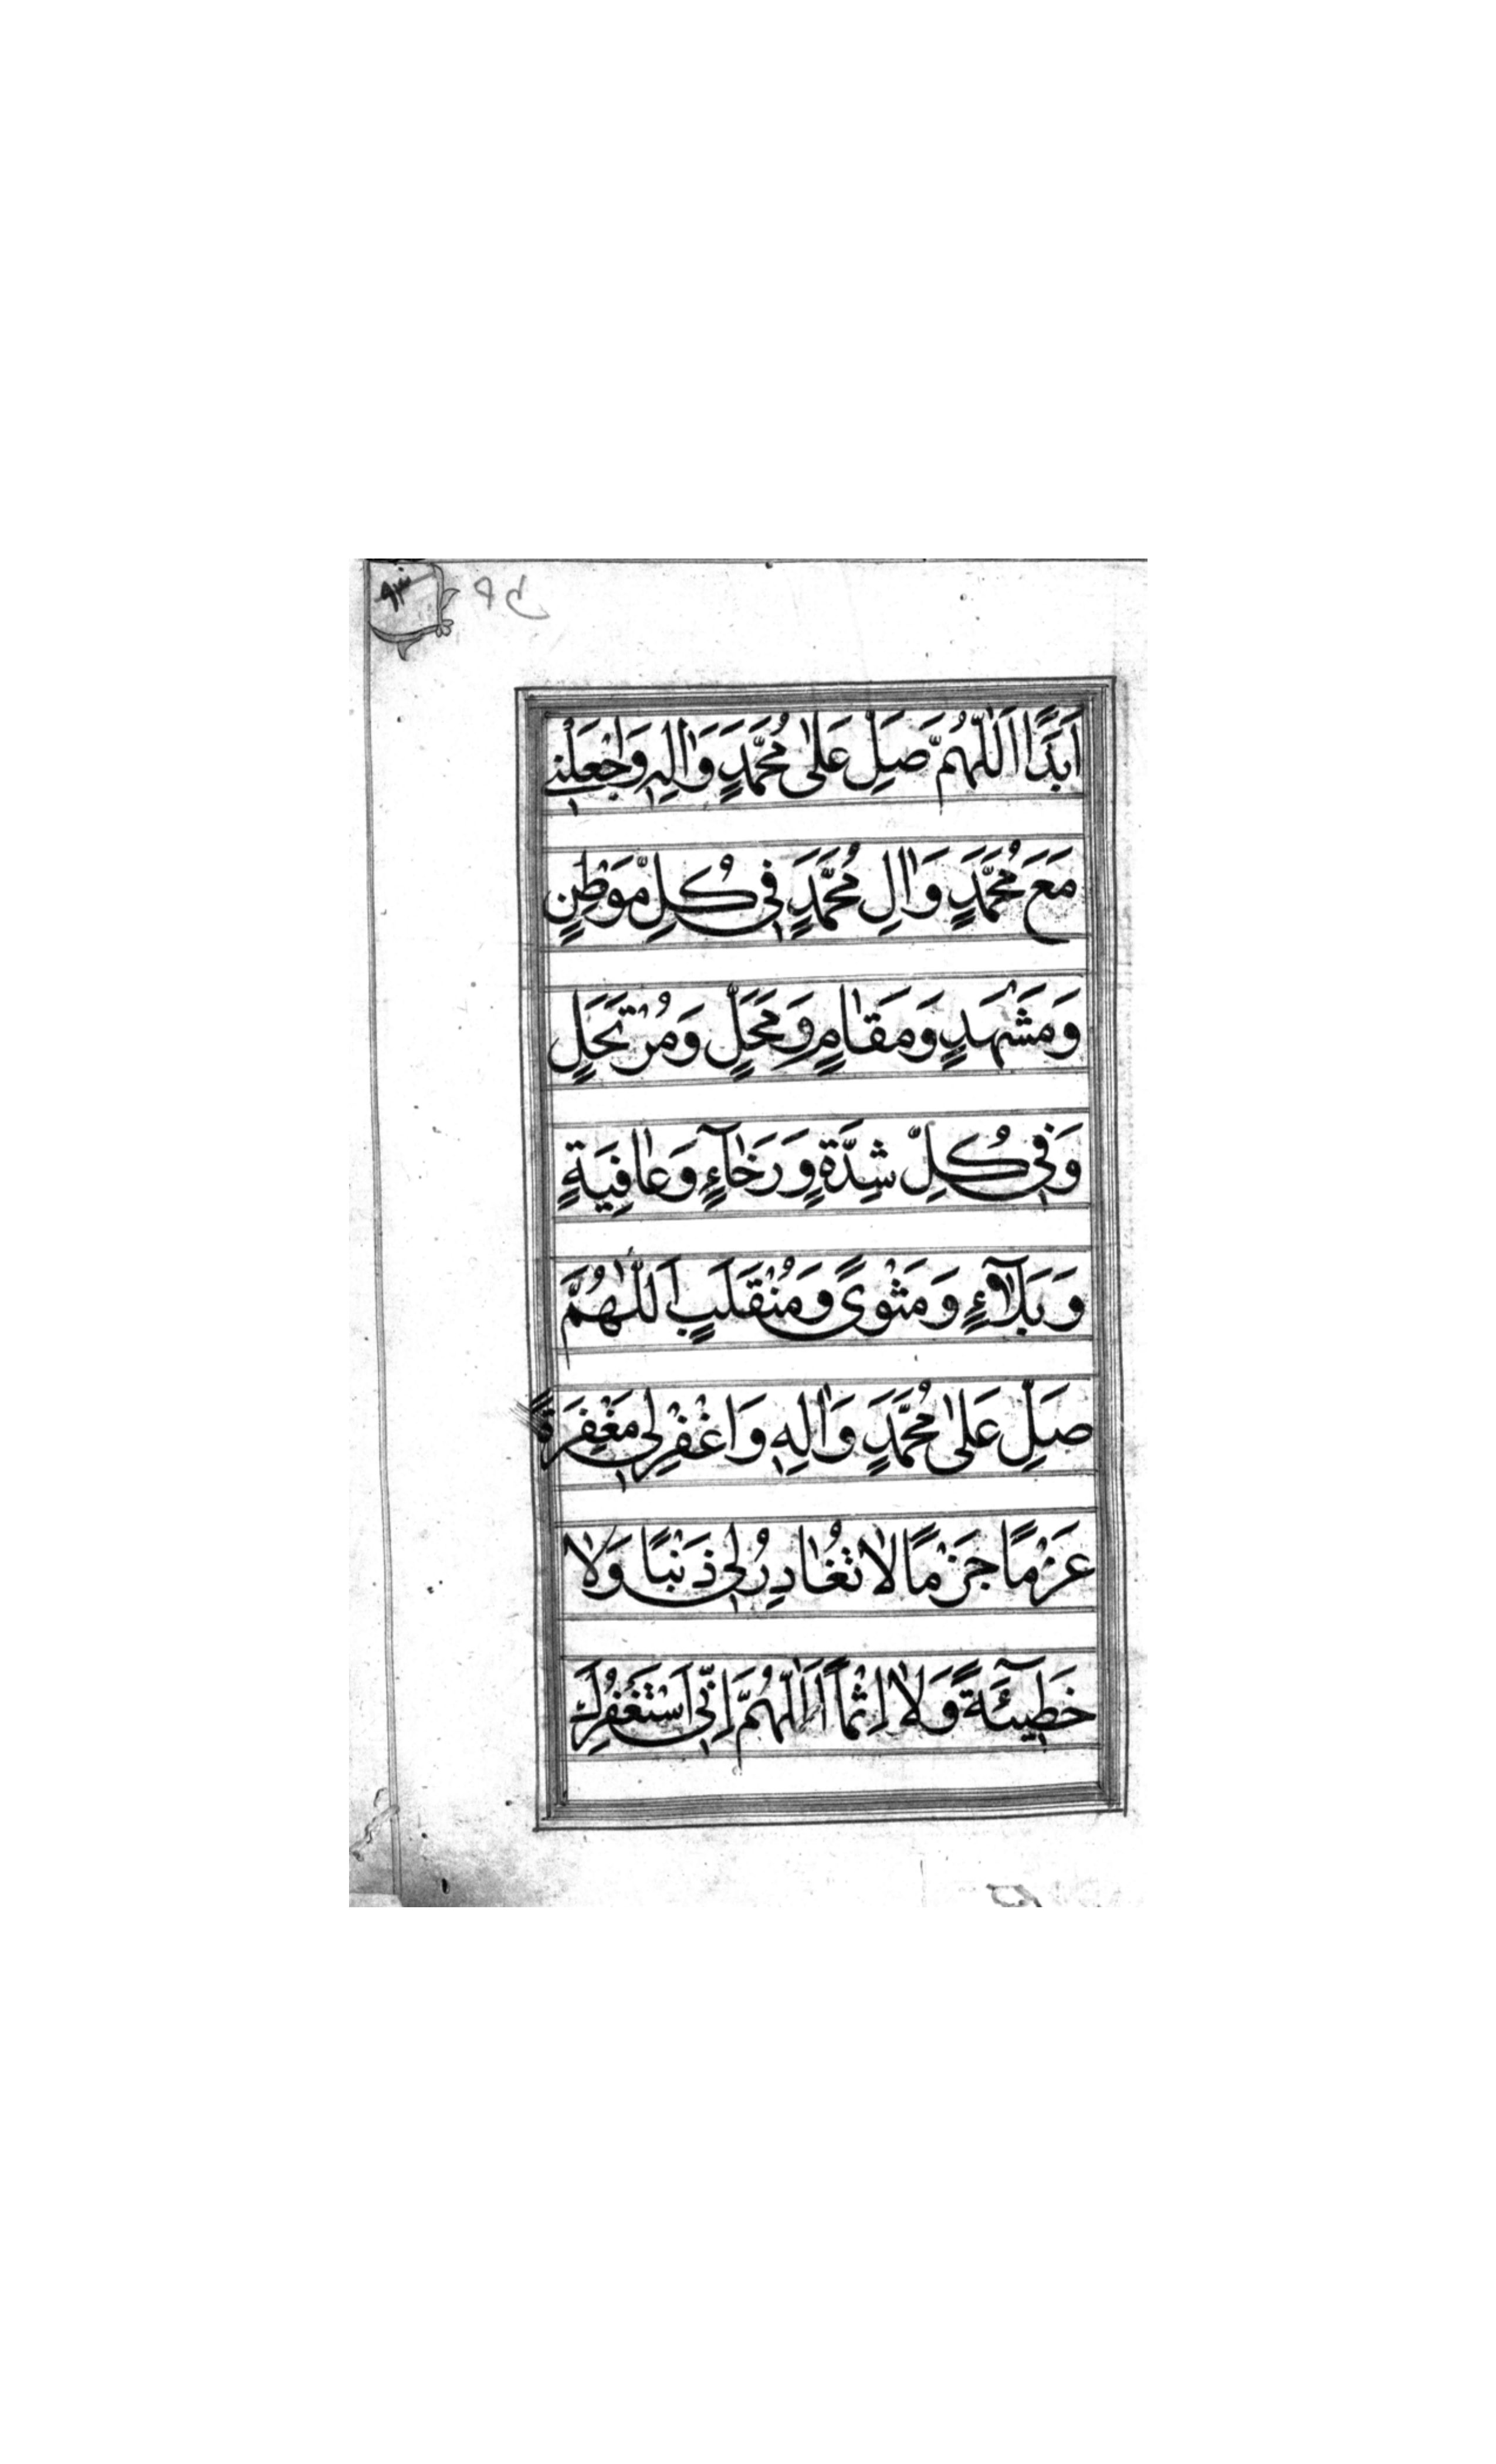 ۹۳
اَبَدًا اَللّٰهُمَّ صَلِّ عَلىٰ مُحَمَّدٍ وَاٰلِهٖ وَاجْعَلْنٖى
مَعَ مُحَمَّدٍ وَاٰلِ مُحَمَّدٍ فٖى كُلِّ مَوْطِنٍ
وَمَشْهَدٍ وَمَقٰامٍ وَمَحَلٍّ وَمُرْتَحَلٍ
وَفٖى كُلِّ شِدَّةٍ وَرَخٰآءٍ وَعٰافِيَةٍ
وَبَلٰآءٍ وَمَثْوىً وَمُنْقَلَبٍ اَللّٰهُمَّ
صَلِّ عَلىٰ مُحَمَّدٍ وَاٰلِهٖ وَاغْفِرْلٖى مَغْفِرَةً
عَزْمًا جَزْمًا لٰا تُغٰادِرُ لٖى ذَنْبًا وَلٰا
خَطٖيٓئَةً وَلٰا اِثْماً اَللّٰهُمَّ اِنّٖى اَسْتَغْفِرُكَ